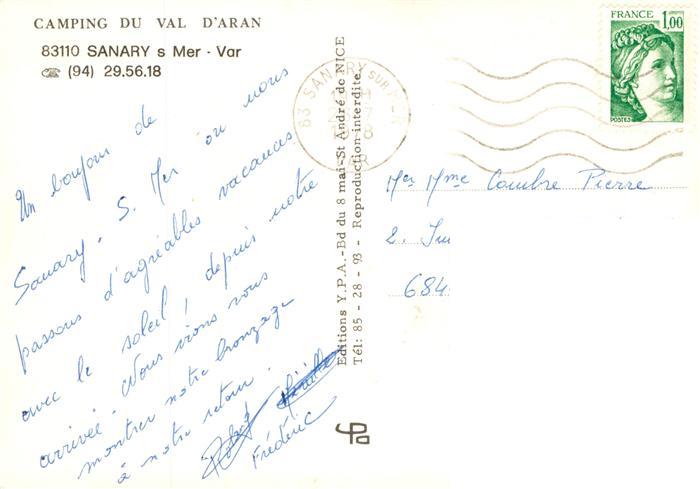 CAMPING DU VAL D'ARAN
83110 SANARY s Mer - Var
☎ (94) 29.56.18
Un bonjour de
Sanary. S. Mer où nous
passons d'agréables vacances
avec le soleil! depuis notre
arrivée. Nous irons vous
montrer notre bronzage
à notre retour.
Mireille
Frédéric
Editions Y.P.A.-Bd du 8 mai-St André de NICE
Tél: 85 - 28 - 93 - Reproduction interdite
83 SANARY SUR MER
FRANCE 1,00
POSTES
Mer Mme Combre Pierre
2.
684